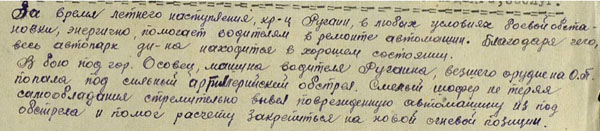 За время летнего наступления, кр-ц Ругаин, в любых условиях боевой обста-
новки, энергично, помогает водителям в ремонте автомашин. Благодаря чего,
весь автопарк ди-на находится в хорошем состоянии.
В бою под гор. Осовец, машина водителя Ругаина, везшего орудие на О.П.
попала под сильный артиллерийский обстрел. Смелый шофер не теряя
самообладания стремительно вывел поврежденную автомашину из под
обстрела и помог расчету закрепиться на новой огневой позиции.